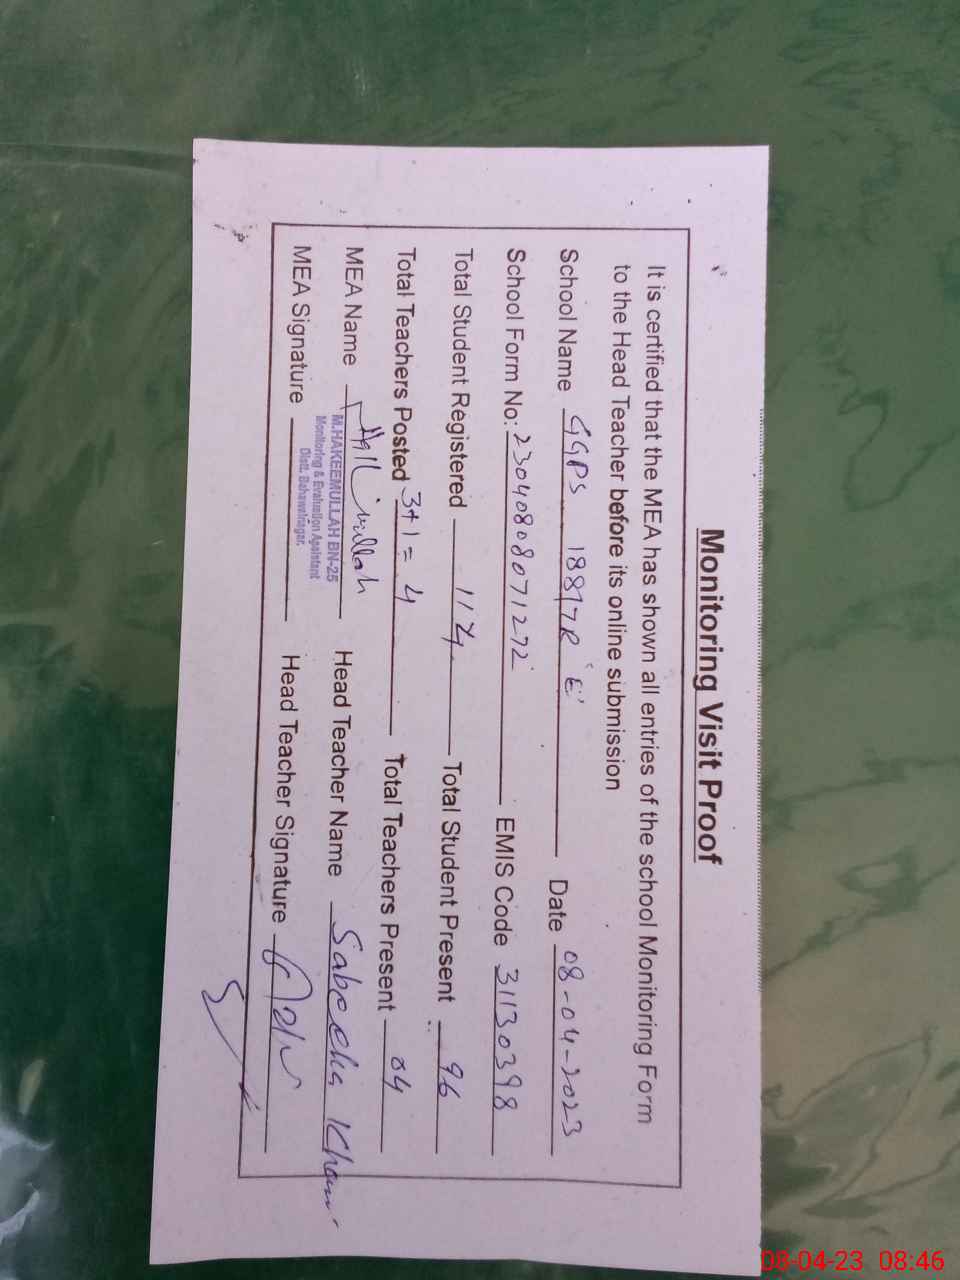 Monitoring Visit Proof
It is certified that the MEA has shown all entries of the school Monitoring Form
to the Head Teacher before its online submission
School Name GGPS 188/7R 'E' Date 08-04-2023
School Form No: 23040808071272 EMIS Code 31130398
Total Student Registered 114 Total Student Present 96
Total Teachers Posted 3+1=4 Total Teachers Present 04
MEA Name Head Teacher Name Sabeeha Khan
M.HAKEEMULLAH BN-25
Monitoring & Evaluation Assistant
Distt. Bahawalnagar.
MEA Signature Head Teacher Signature
08-04-23 08:46